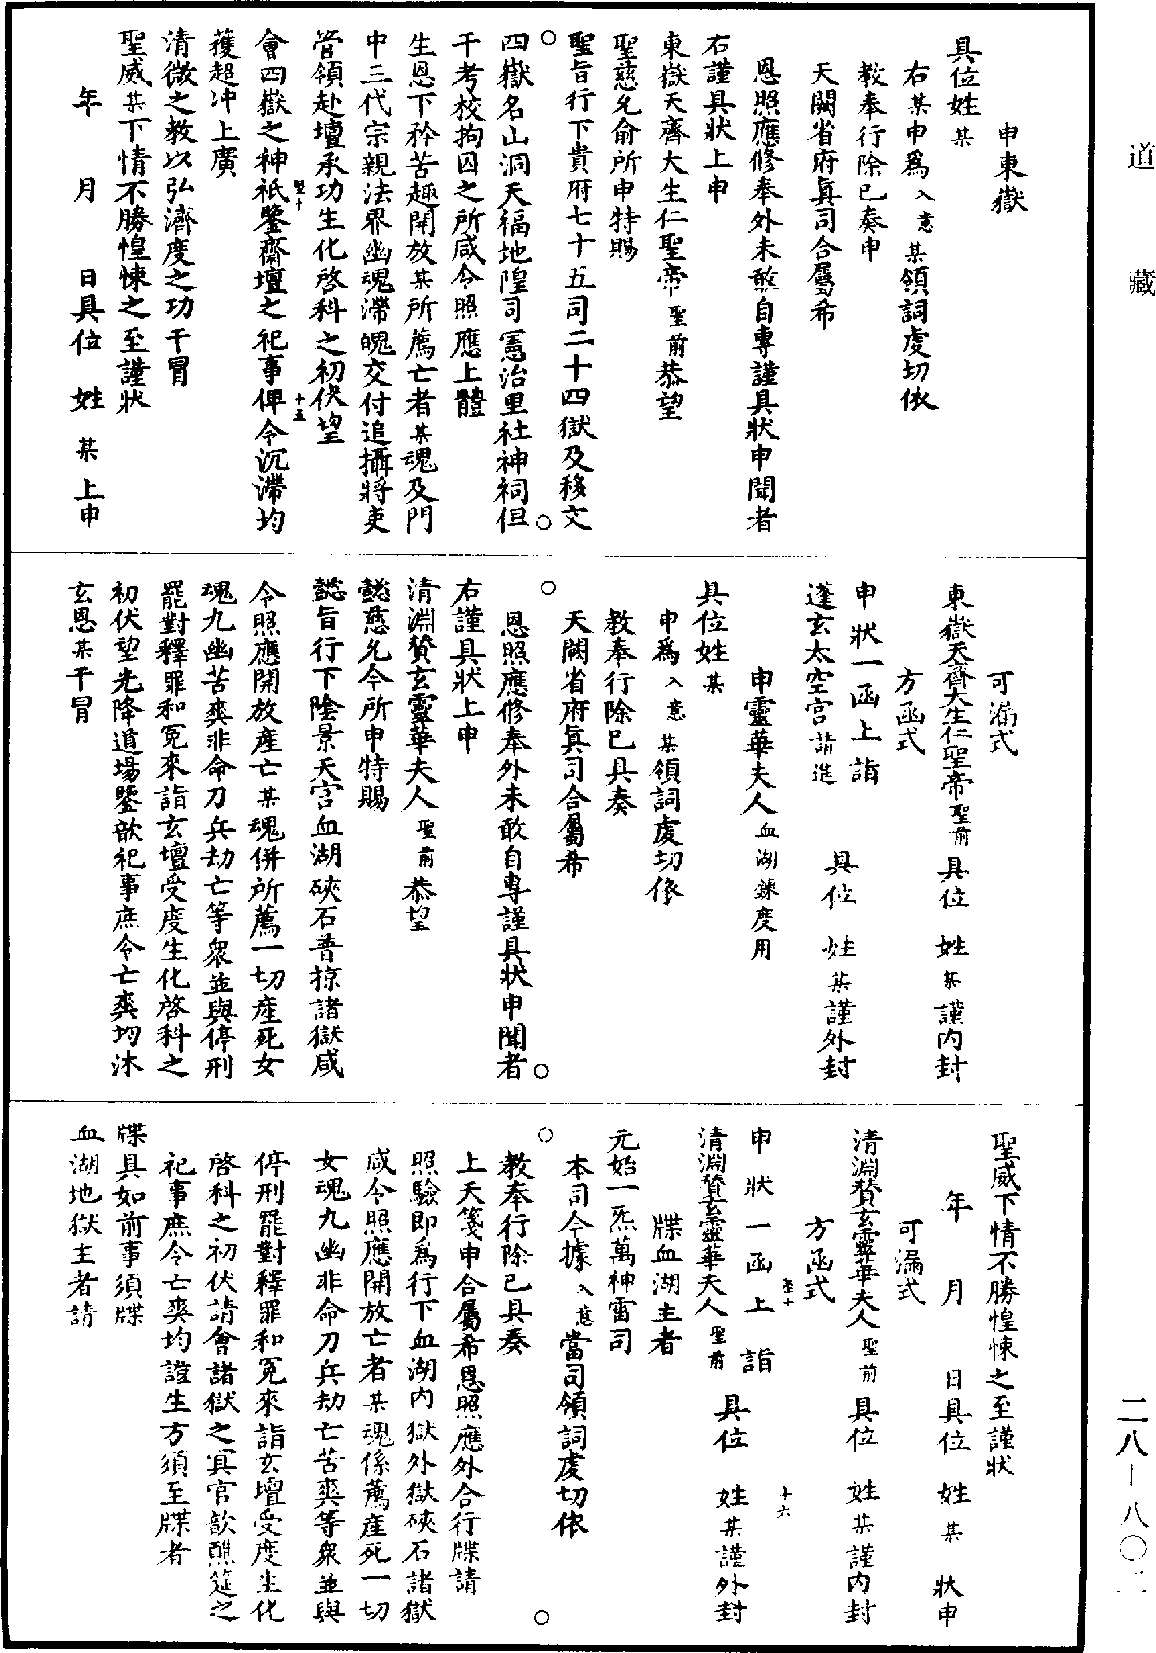 道藏
申東嶽
具位姓某
右某申爲入意某領詞虔切依
教奉行除已奏申
天闕省府眞司合屬希
恩照應修奉外未敢自專謹具狀申聞者
右謹具狀上申
東嶽天齊大生仁聖帝聖前恭望
聖慈允俞所申特賜
聖旨行下貴府七十五司二十四獄及移文
四嶽名山洞天福地隍司憲治里社神祠但
干考校拘囚之所咸令照應上體
生恩下矜苦趣開放某所薦亡者某魂及門
中三代宗親法界幽魂滯魄交付追攝將吏
管領赴壇承功生化啓科之初伏望
會四嶽之神祇鑒齋壇之祀事俾令沉滯均
獲超冲上廣
清微之教以弘濟度之功干冒
聖威某下情不勝惶悚之至謹狀
年 月 日具位 姓 某 上申
聖十
十五
可漏式
東嶽天齊大生仁聖帝聖前具位 姓某謹內封
方函式
申狀一函上詣
蓬玄太空宮請進 具位 姓某謹外封
申靈華夫人血湖鍊度用
具位姓某
申爲入意某領詞虔切依
教奉行除已具奏
天闕省府眞司合屬希
恩照應修奉外未敢自專謹具狀申聞者
右謹具狀上申
清淵贊玄靈華夫人聖前恭望
懿慈允令所申特賜
懿旨行下陰景天宮血湖硤石普掠諸獄咸
令照應開放產亡某魂併所薦一切產死女
魂九幽苦爽非命刀兵劫亡等衆並與停刑
罷對釋罪和冤來詣玄壇受度生化啓科之
初伏望光降道場鑒歆祀事庶令亡爽均沐
玄恩某干冒
聖威下情不勝惶悚之至謹狀
年 月 日具位 姓 某 狀申
可漏式
清淵贊玄靈華夫人聖前具位 姓某謹內封
方函式
申狀一函上詣
清淵贊玄靈華夫人聖前 具位 姓某謹外封
聖十
十六
牒血湖主者
元始一炁萬神雷司
本司今據入意當司領詞虔切依
教奉行除已具奏
上天箋申合屬希恩照應外合行牒請
照驗即爲行下血湖內獄外獄硤石諸獄
咸令照應開放亡者某魂係薦產死一切
女魂九幽非命刀兵劫亡苦爽等衆並與
停刑罷對釋罪和冤來詣玄壇受度生化
啓科之初伏請會諸獄之冥官歆醮筵之
祀事庶令亡爽均證生方須至牒者
牒具如前事須牒
血湖地獄主者請
二八—八〇二